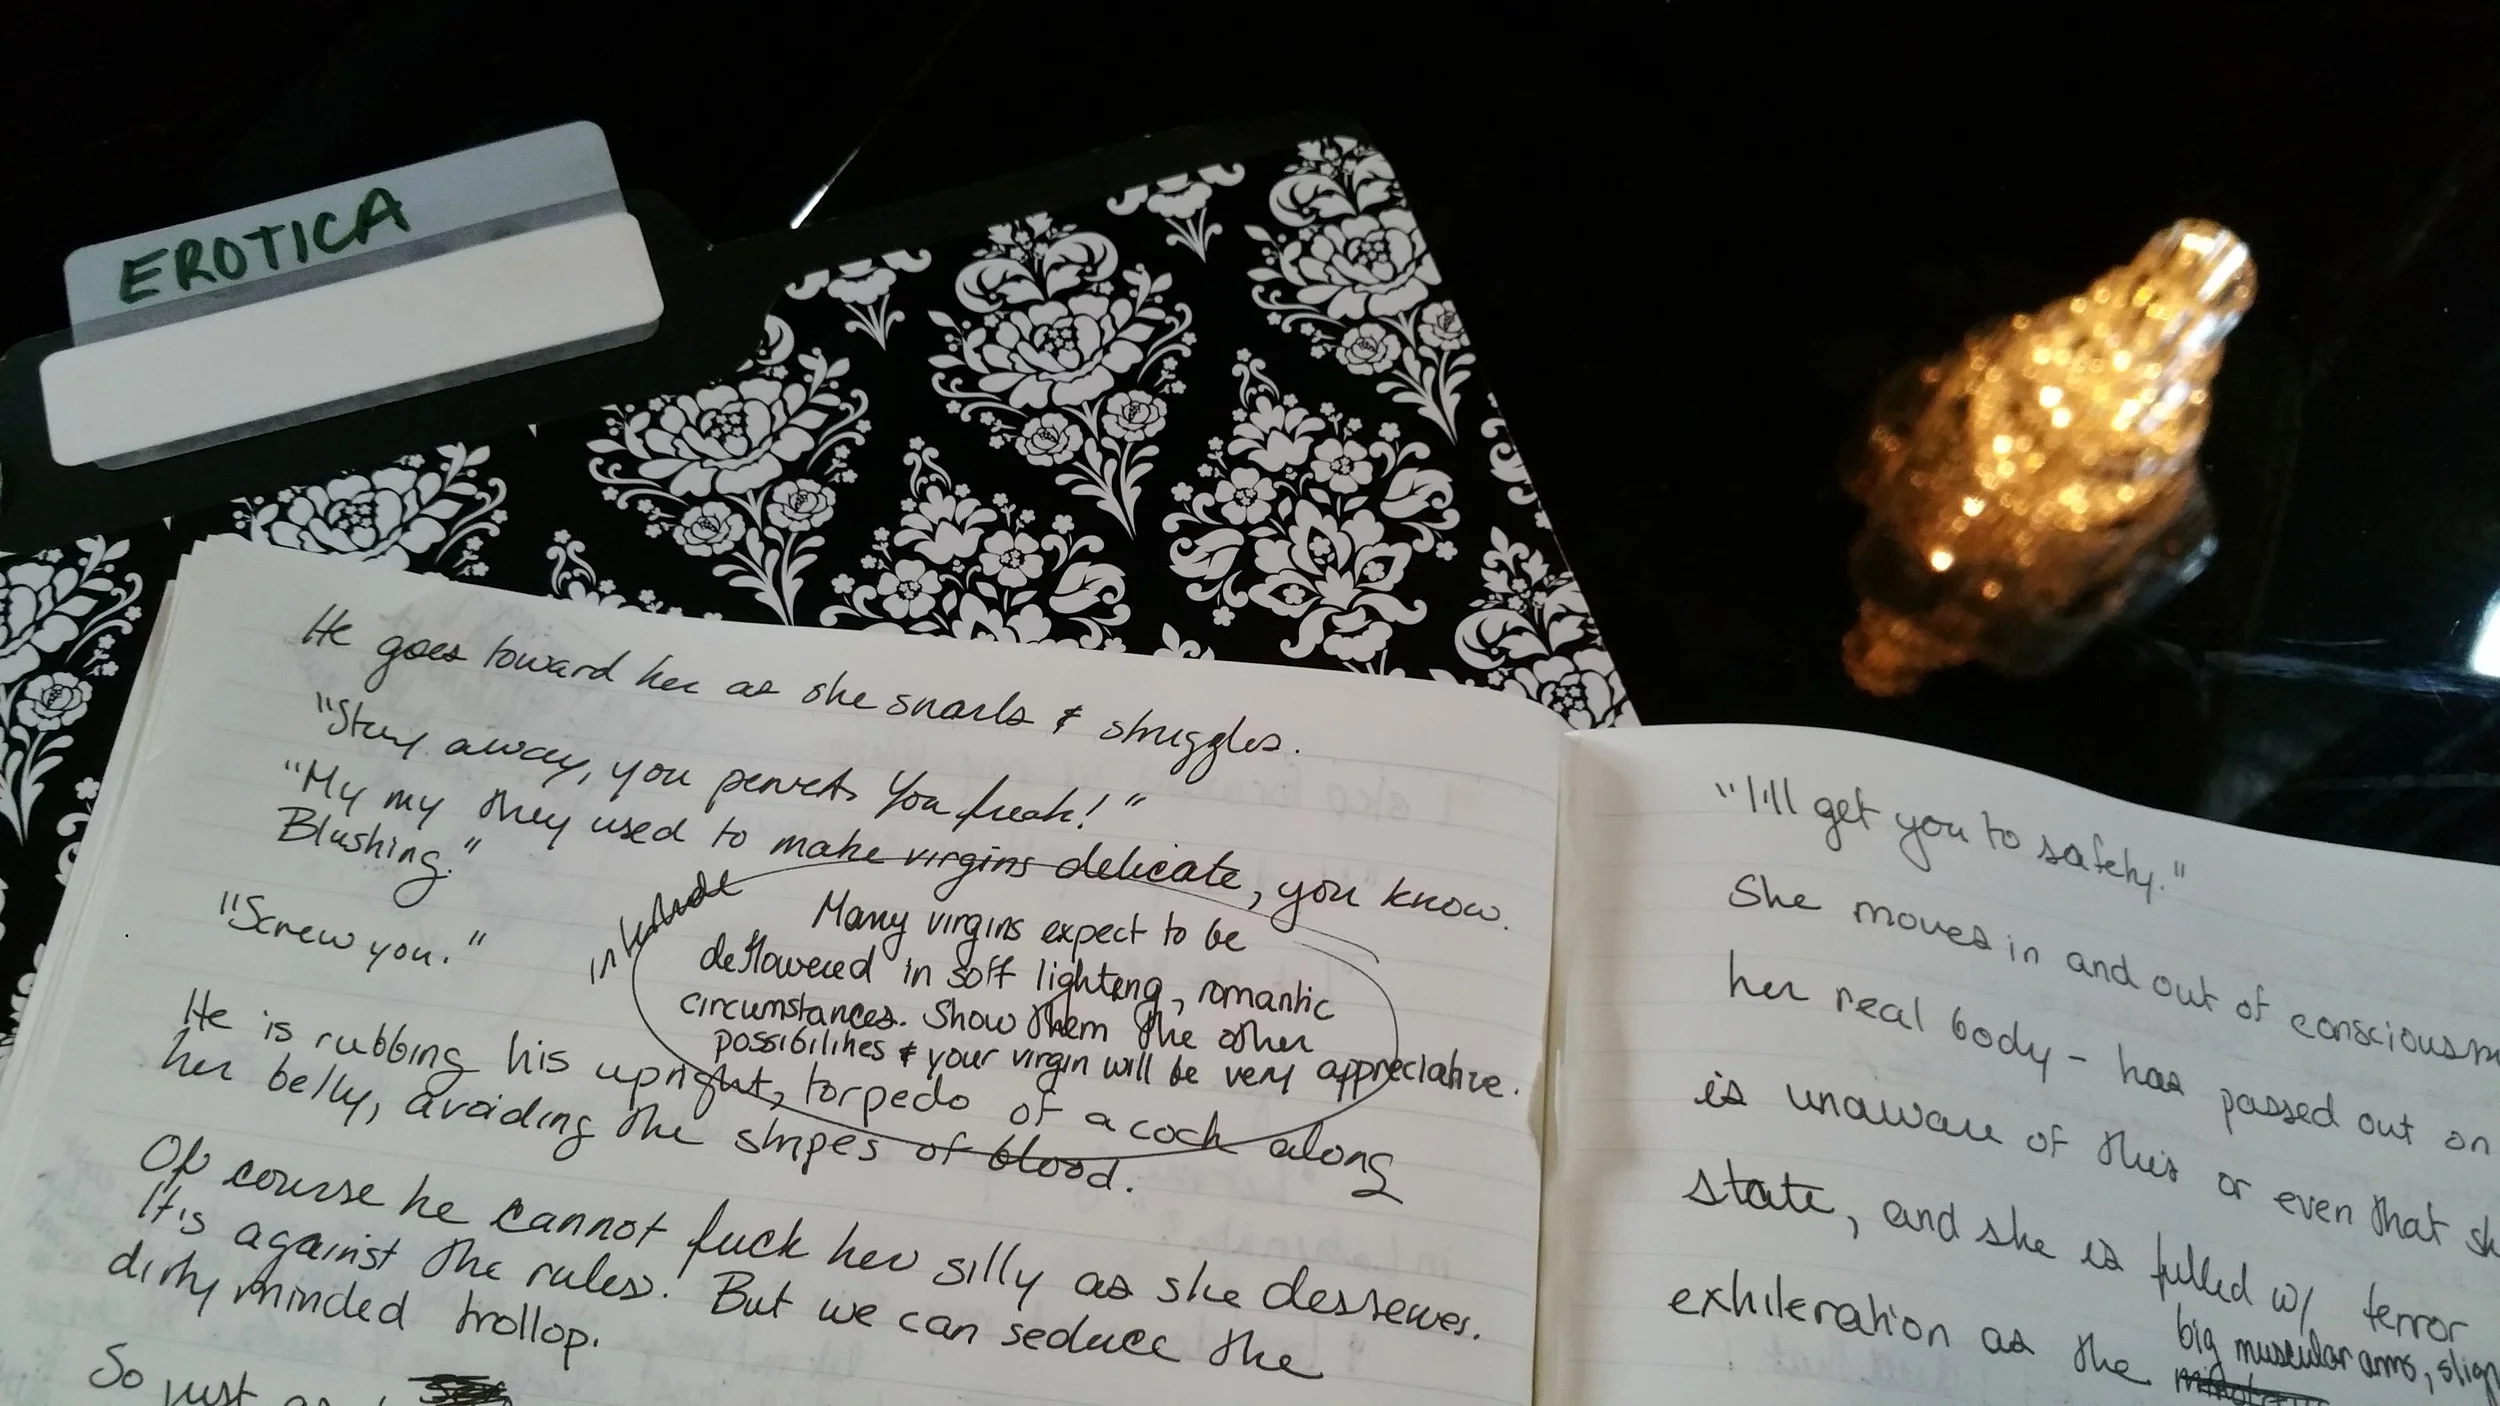 EROTICA
He goes toward her as she snarls & struggles.
"Stay away, you pervert. You freak!"
"My my they used to make virgins delicate, you know.
Blushing."
"Screw you."
Many virgins expect to be
deflowered in soft lighting, romantic
circumstances. Show them the other
possibilities & your virgin will be very appreciative.
He is rubbing his upright, torpedo of a cock along
her belly, avoiding the stripes of blood.
Of course he cannot fuck her silly as she desserves.
It is against the rules. But we can seduce the
dirty minded trollop.
So just as
"I'll get you to safety."
She moves in and out of
her real body - has passed out on
is unaware of this or even that
state, and she is filled w/ terror
exhileration as the big muscular arms,